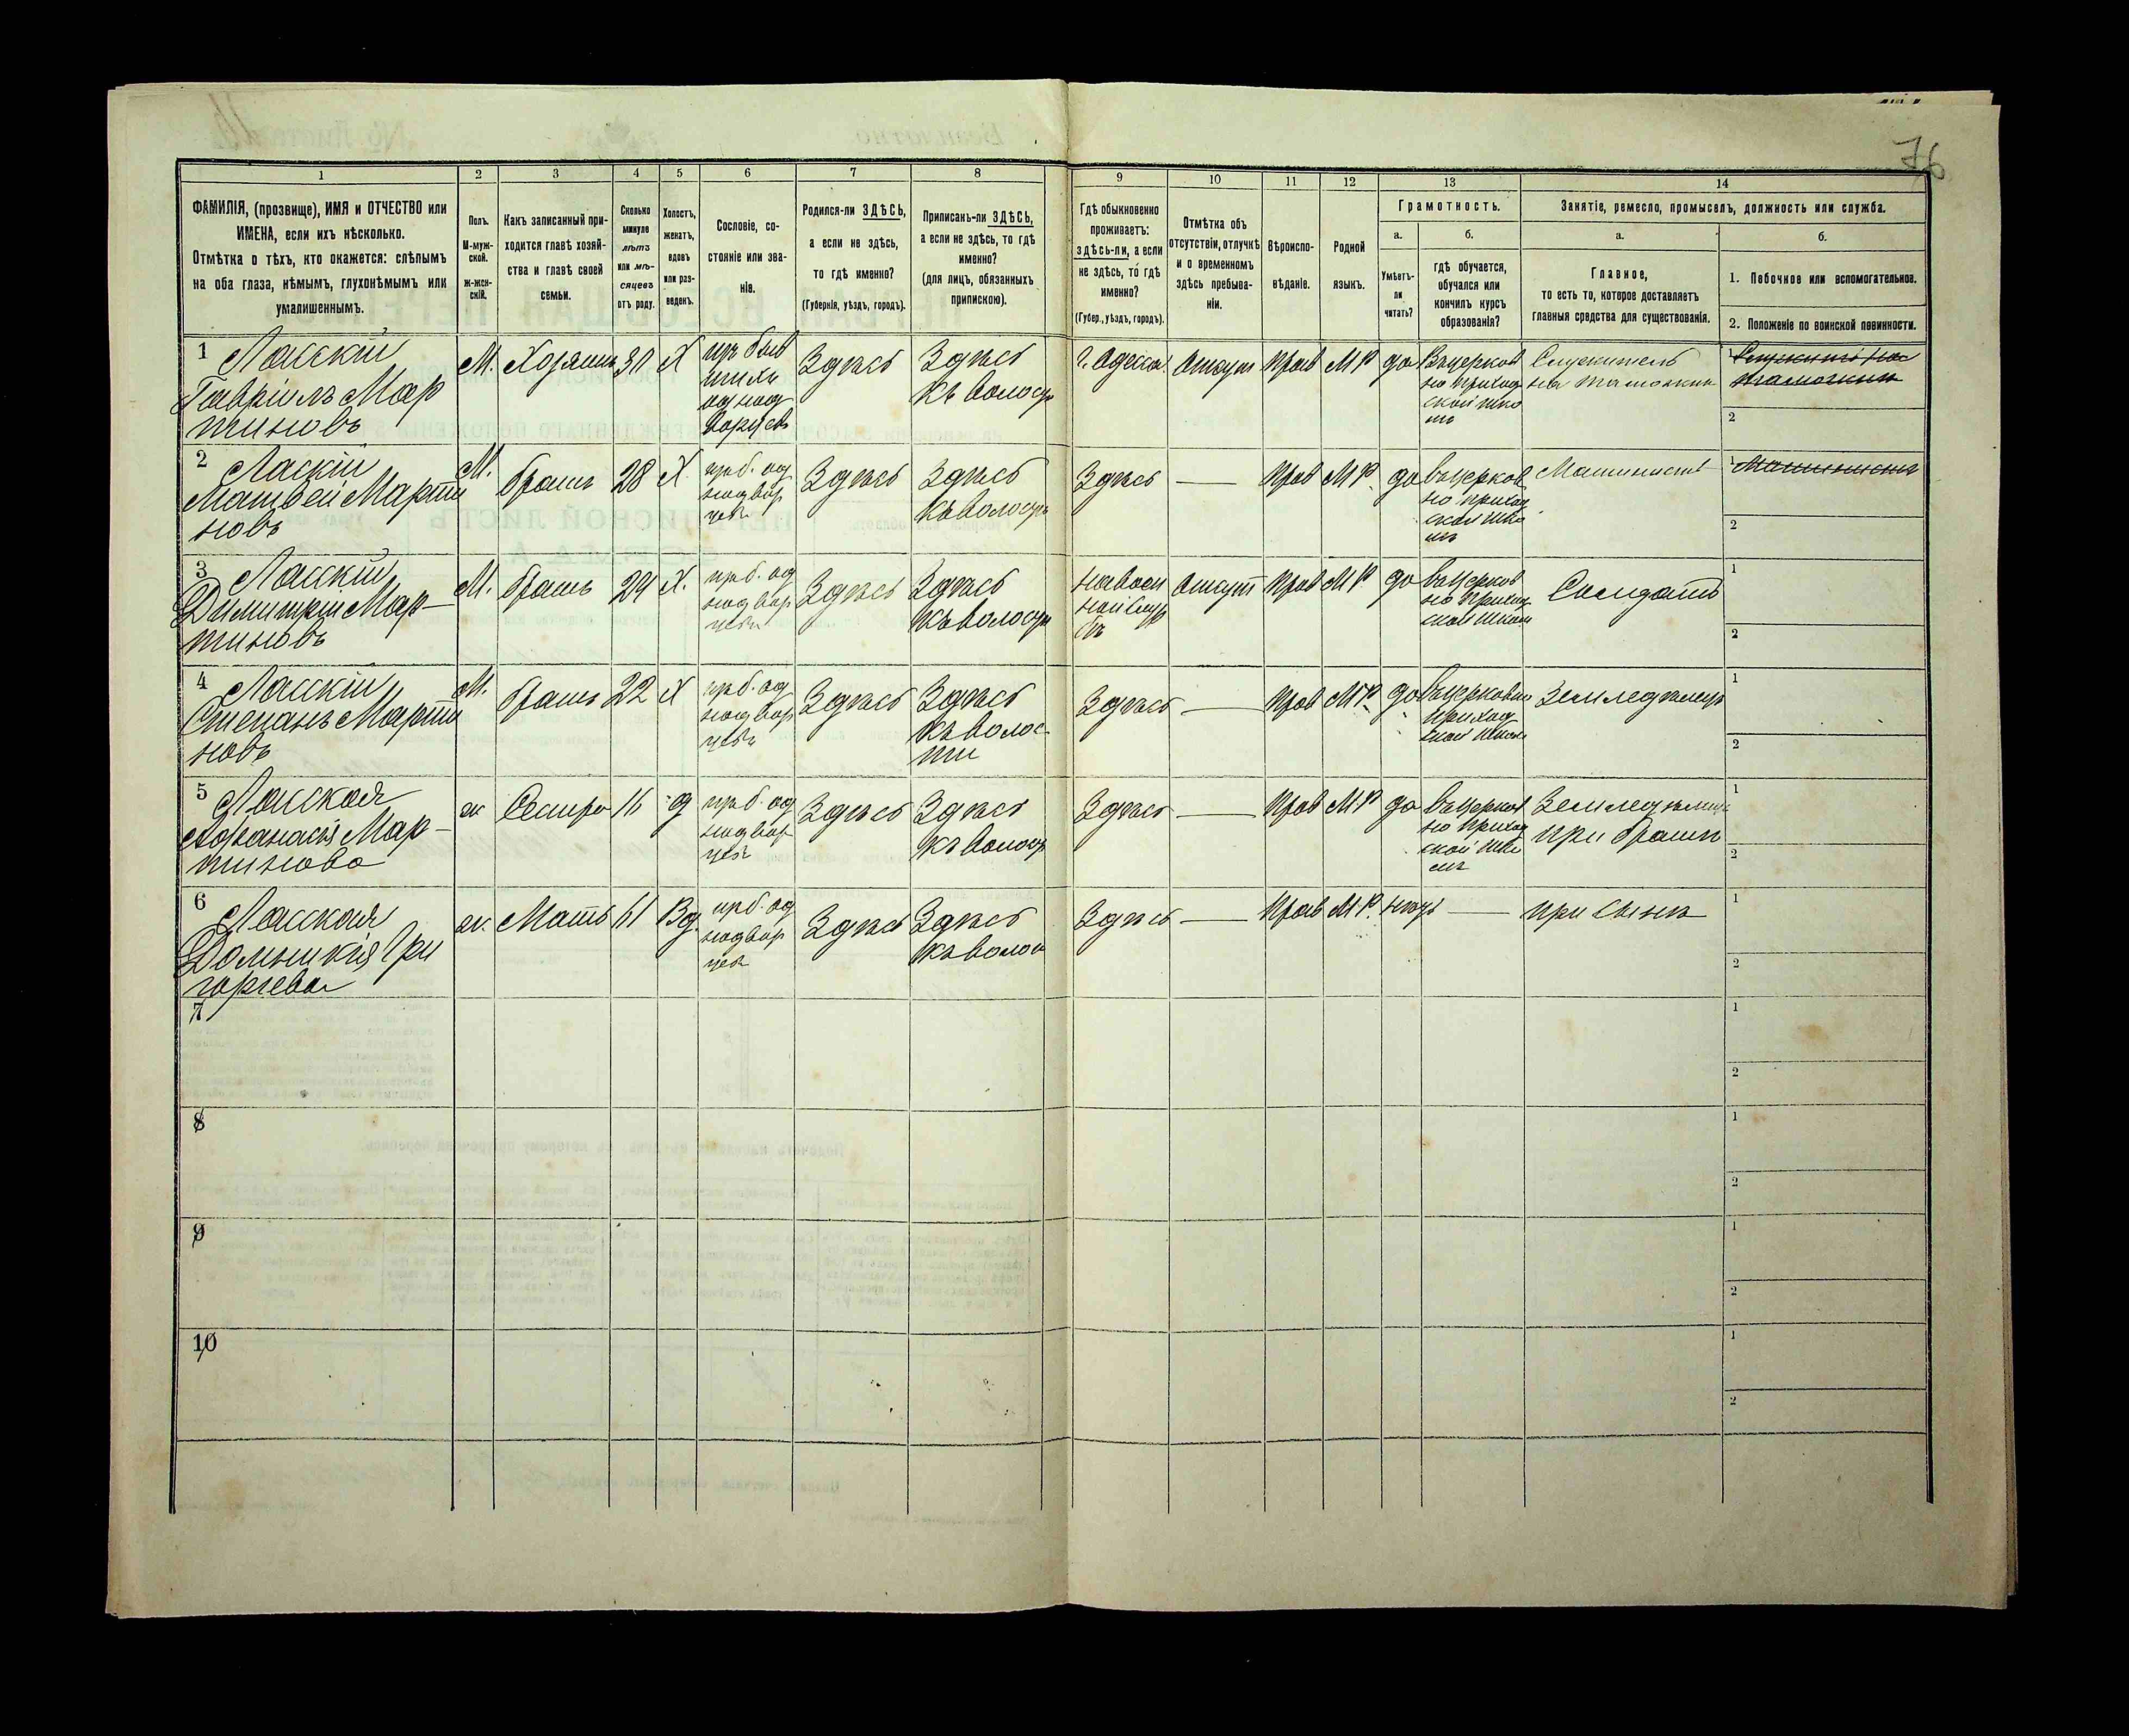 76
1 2 3 4 5 6 7 8 9 10 11 12 13 14
ФАМИЛІЯ, (прозвище), ИМЯ и ОТЧЕСТВО или
ИМЕНА, если ихъ нѣсколько.
Отмѣтка о тѣхъ, кто окажется: слѣпымъ
на оба глаза, нѣмымъ, глухонѣмымъ или
умалишеннымъ.
Полъ.
М-муж-
ской.
ж-жен-
скій.
Какъ записанный при-
ходится главѣ хозяй-
ства и главѣ своей
семьи.
Сколько
минуло
лѣтъ
или мѣ-
сяцевъ
отъ роду.
Холостъ,
женатъ,
вдовъ
или раз-
веденъ.
Сословіе, со-
стояніе или зва-
ніе.
Родился-ли ЗДѢСЬ,
а если не здѣсь,
то гдѣ именно?
(Губернія, уѣздъ, городъ).
Приписанъ-ли ЗДѢСЬ,
а если не здѣсь, то гдѣ
именно?
(для лицъ, обязанныхъ
припискою).
Гдѣ обыкновенно
проживаетъ:
здѣсь-ли, а если
не здѣсь, то гдѣ
именно?
(Губер., уѣздъ, городъ).
Отмѣтка объ
отсутствіи, отлучкѣ
и о временномъ
здѣсь пребыва-
ніи.
Вѣроиспо-
вѣданіе.
Родной
языкъ.
Грамотность.
а.
Умѣетъ-
ли
читать?
б.
гдѣ обучается,
обучался или
кончилъ курсъ
образованія?
Занятіе, ремесло, промыселъ, должность или служба.
а.
Главное,
то есть то, которое доставляетъ
главныя средства для существованія.
б.
1. Побочное или вспомогательное.
2. Положеніе по воинской повинности.
1 Ласскій
Гавріилъ Мар
тиновъ
М. Хозяинъ 31 Х
Здѣсь
Здѣсь
къ волости
г. Одесса. Отсут Прав М Р да
Вцерков
но приход
ской шко
лѣ
Служитель
на таможни
1
2
2 Ласкій
Матвей Марти
новъ
М. братъ 28 Х
прб. од
нодвор
цевъ
Здѣсь
Здѣсь
къ волости
Здѣсь — Прав М Р. да
вцерков
но приход
ской шко
лѣ
Машинистъ
1 Машинистъ
2
3 Ласкій
Димитрій Мар-
тиновъ
М. братъ 24 Х.
прб. од
нодвор
цевъ
Здѣсь
Здѣсь
къ волости
На воен
ной служ
бѣ
Отсут Прав М Р да
вцерков
но приход
ской школ
Солдатъ
1
2
4 Ласскій
Степанъ Марти
новъ
М. братъ 22 Х
прб. од
нодвор
цевъ
Здѣсь
Здѣсь
къ волос-
ти
Здѣсь — Прав М Р. да
вцерковно
приход
ской школ
Земледѣлецъ
1
2
5 Ласская
Афанасія Мар-
тинова
ж Сестра 16 д
прб. од
нодвор
цевъ
Здѣсь
Здѣсь
къ волости
Здѣсь — Прав М Р да
вцерков
но приход
ской шко
лѣ
при братѣ
1
2
6 Ласская
Домникія Гри
горіева
ж. Мать 61 Вд.
прб. од
нодвор
цевъ
Здѣсь
Здѣсь
къ волос
Здѣсь — Прав М.Р. нѣтъ —
при сынѣ
1
2
7
1
2
8
1
2
9
1
2
10
1
2